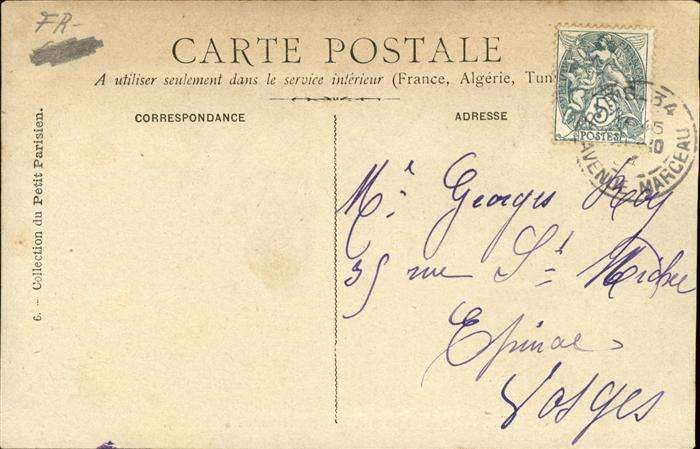 FR-
CARTE POSTALE
A utiliser seulement dans le service intérieur (France, Algérie, Tun
CORRESPONDANCE
ADRESSE
6. — Collection du Petit Parisien.
5
POSTES
PARIS 54
AVENUE MARCEAU
Mr Georges Roy
35 rue St Michel
Epinal
Vosges